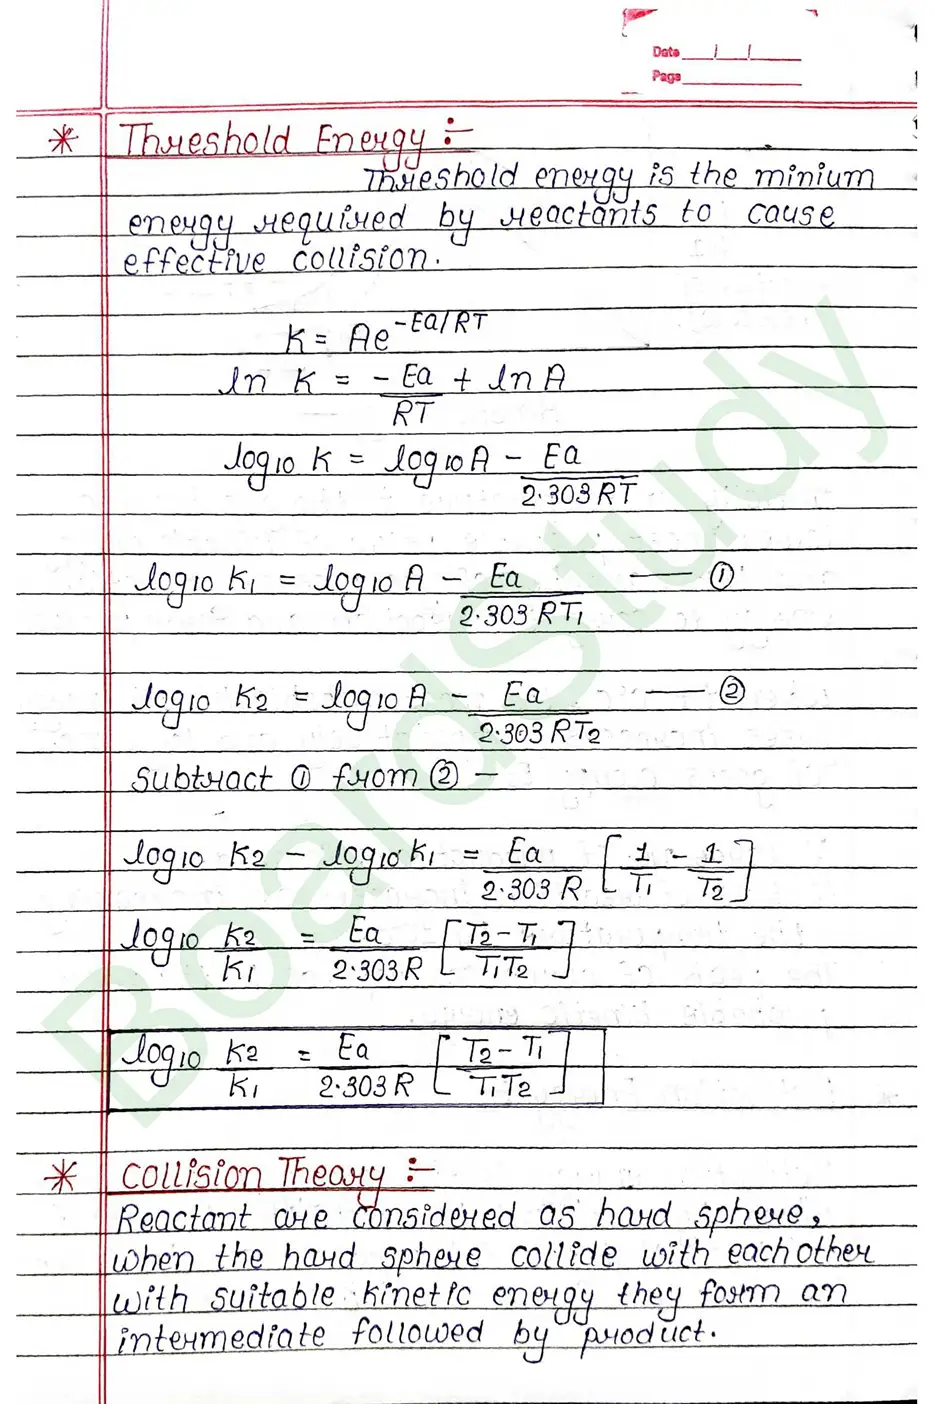 Date / /
Page
* Threshold Energy :-
Threshold energy is the minium
energy required by reactants to cause
effective collision.
K = Ae^-Ea/RT
ln K = - Ea/RT + ln A
log10 K = log10 A - Ea/2.303 RT
log10 K1 = log10 A - Ea/2.303 RT1 — ①
log10 K2 = log10 A - Ea/2.303 RT2 — ②
Subtract ① from ② -
log10 K2 - log10 K1 = Ea/2.303 R [1/T1 - 1/T2]
log10 K2/K1 = Ea/2.303 R [T2-T1/T1T2]
log10 K2/K1 = Ea/2.303 R [T2-T1/T1T2]
* Collision Theory :-
Reactant are considered as hard sphere,
when the hard sphere collide with each other
with suitable kinetic energy they form an
intermediate followed by product.
BoardStudy